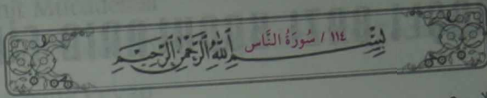 ١١٤ / سُورَةُ النَّاس
بِسْمِ اللّٰهِ الرَّحْمٰنِ الرَّحِيمِ